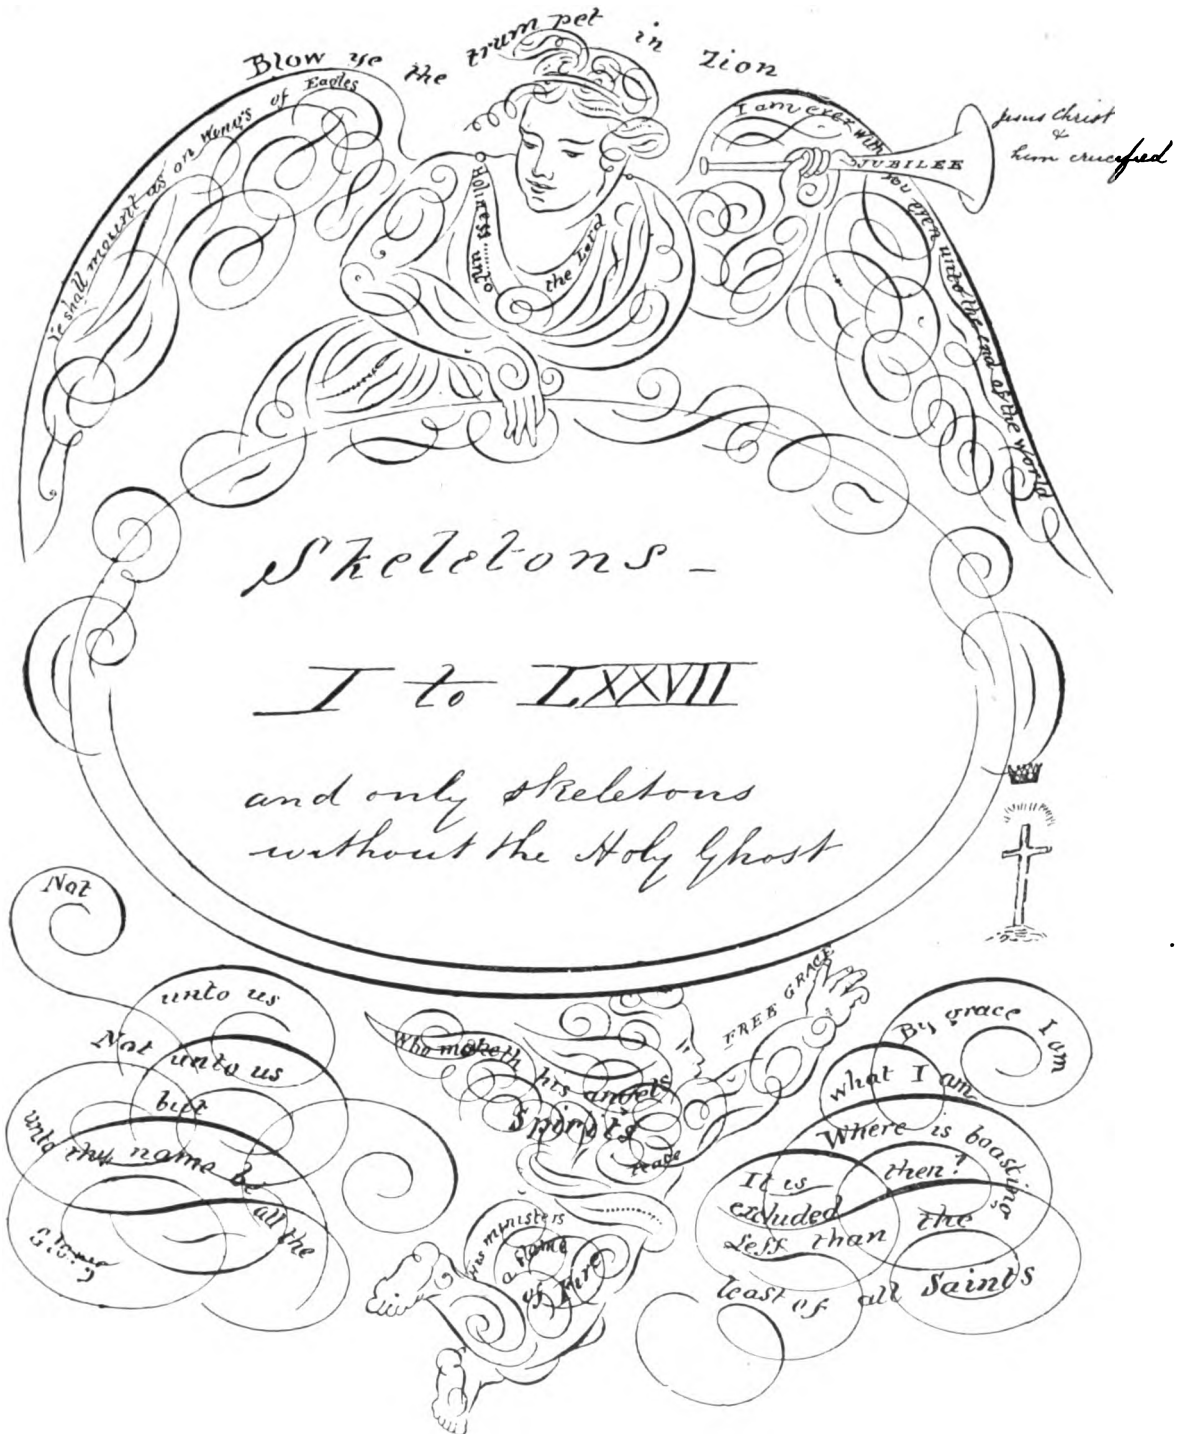 Blow ye the trumpet in Zion
Ye shall mount as on Wings of Eagles
I am ever with you even unto the end of the world
JUBILEE
Jesus Christ
&
him crucified
Holiness unto
the Lord
Skeletons –
I to LXXVII
and only skeletons
without the Holy Ghost
Not
unto us
Not unto us
but
unto thy name be
all the
Glory
FREE GRACE
Who maketh his angels
Spirits
His ministers
a flame
of Fire
By grace I am
what I am
Where is boasting
then?
It is
excluded
Less than the
least of all Saints